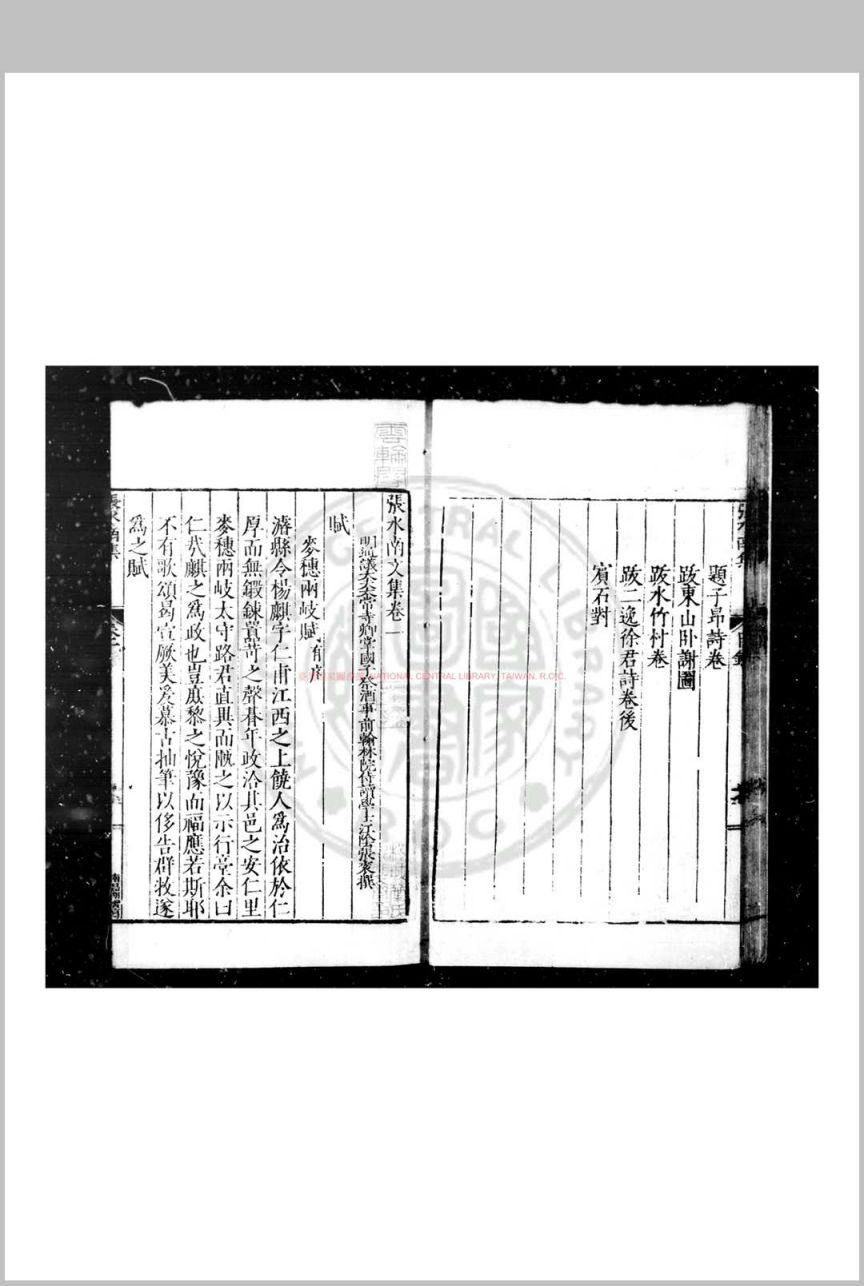 題子昂詩卷
跋東山卧謝圖
跋水竹村卷
跋二逸徐君詩卷後
賓石對
張水南文集卷一
明議大夫太常寺卿掌國子祭酒事前翰林院侍讀學士江陰張袞撰
賦
麥穗兩岐賦有序
濬縣令楊麒字仁甫江西之上饒人為治依於仁
厚而無鍛鍊之聲朞年政洽其邑之安仁里
麥穗兩岐太守路君直異而之以示行臺余曰
仁哉麒之為政也豈庶黎之悅豫而福應若斯耶
不有歌頌曷宣厥美爰慕古抽筆以侈告群牧遂
為之賦
NATIONAL CENTRAL LIBRARY, TAIWAN, R.O.C.